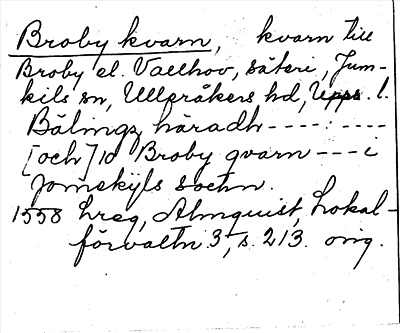 Broby kvarn, kvarn till
Broby el. Vallhov, säteri, Jum-
kils sn, Ulleråkers hd, Upps. l.
Bälings häradh---- : ----
[och] 10 Broby qvarn --- i
Jomskijls soctnn.
1558 Lreg, Almquist, Lokal-
förvaltn 3, s. 213. orig.